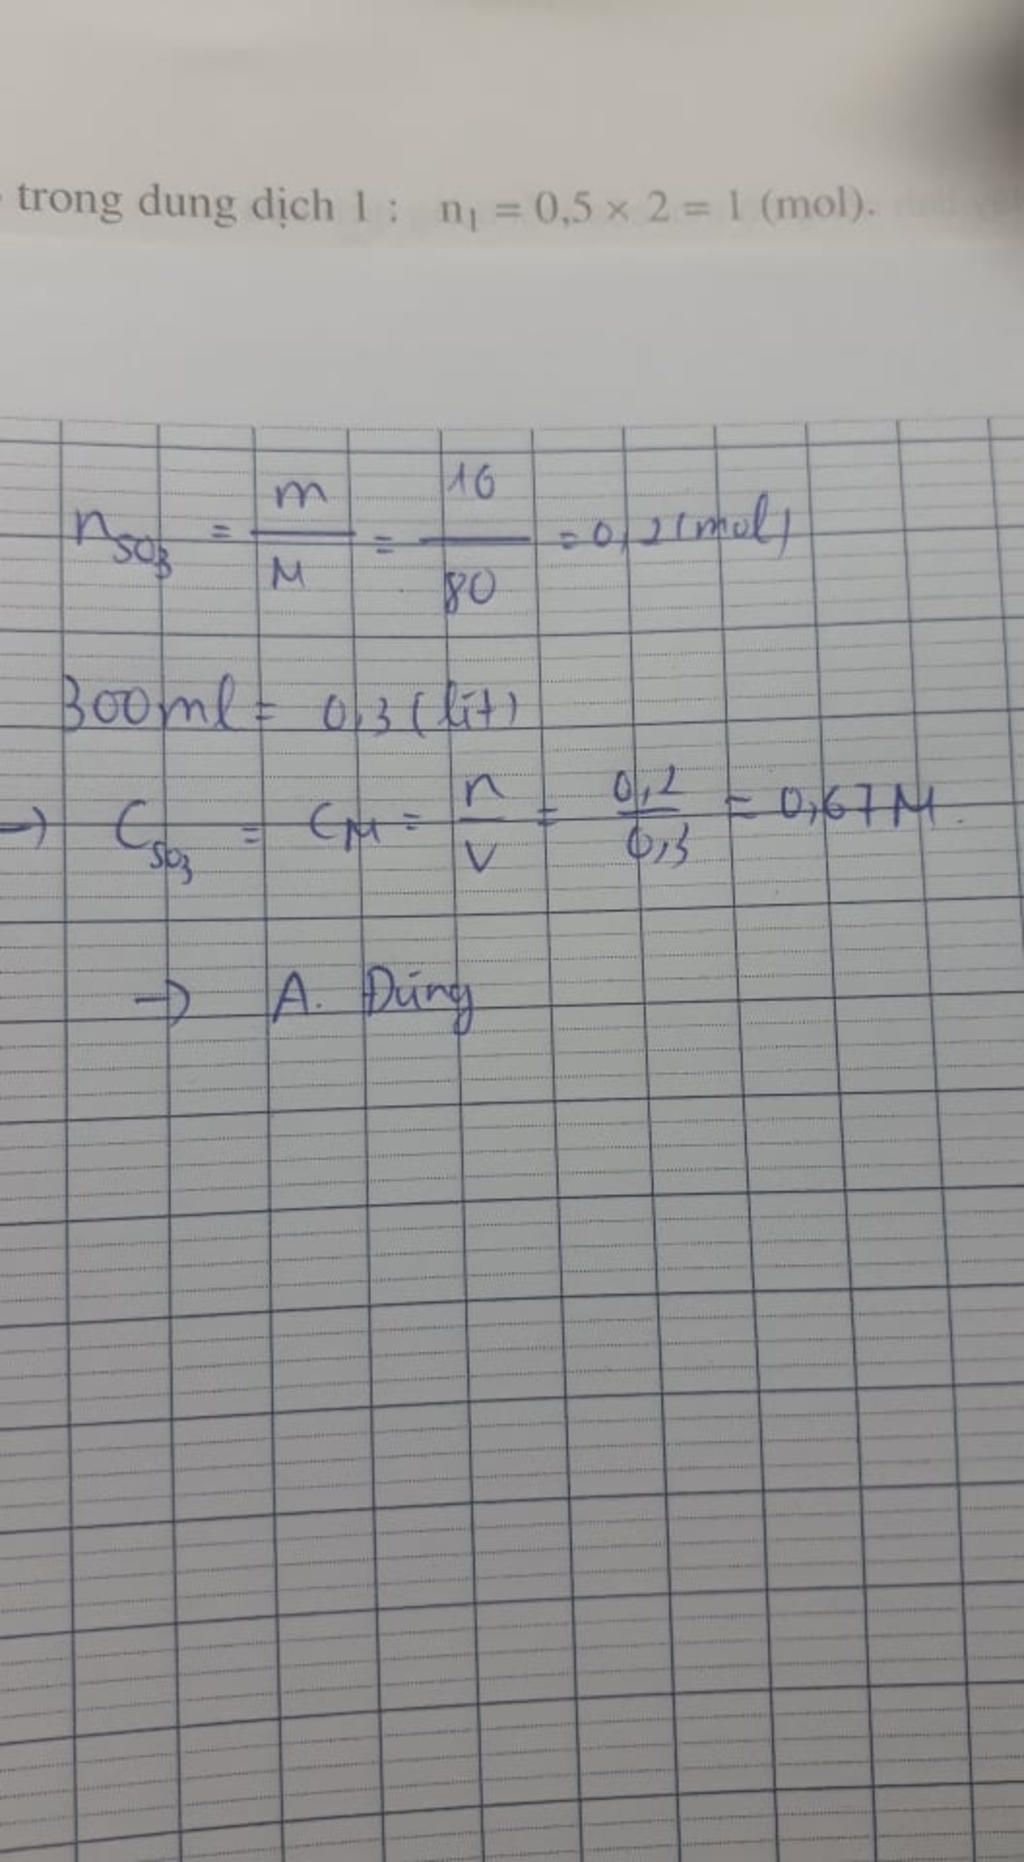 trong dung dịch 1 : n₁ = 0,5 × 2 = 1 (mol).
nSO₃ = m/M = 16/80 = 0,2 (mol)
300ml = 0,3 (lít)
→ CSO₃ = CM = n/V = 0,2/0,3 = 0,67M.
→ A. Đúng